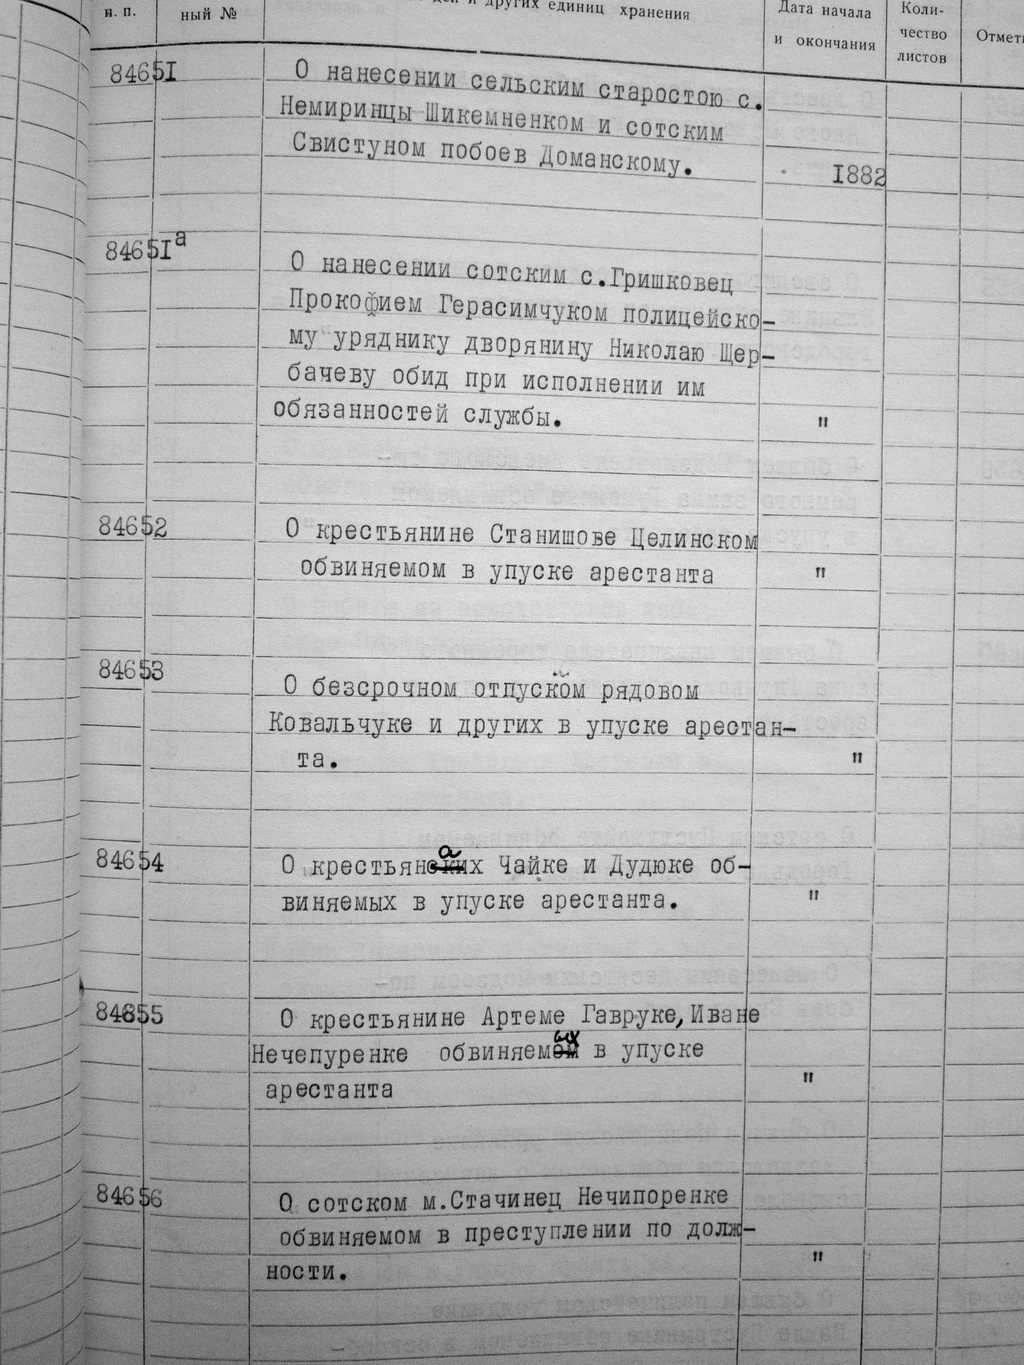 п. п.
ный №
и других единиц хранения
Дата начала
и окончания
Коли-
чество
листов
84651
О нанесении сельским старостою с.
Немиринцы Шикемненком и сотским
Свистуном побоев Доманскому.
1882
84651а
О нанесении сотским с.Гришковец
Прокофием Герасимчуком полицейско-
му уряднику дворянину Николаю Щер-
бачеву обид при исполнении им
обязанностей службы. "
84652
О крестьянине Станишове Целинском
обвиняемом в упуске арестанта "
84653
О безсрочном отпуском рядовом
Ковальчуке и других в упуске арестан-
та. "
84654
О крестьянах Чайке и Дудюке об-
виняемых в упуске арестанта. "
84655
О крестьянине Артеме Гавруке, Иване
Нечепуренке обвиняемых в упуске
арестанта "
84656
О сотском м.Стачинец Нечипоренке
обвиняемом в преступлении по долж-
ности. "